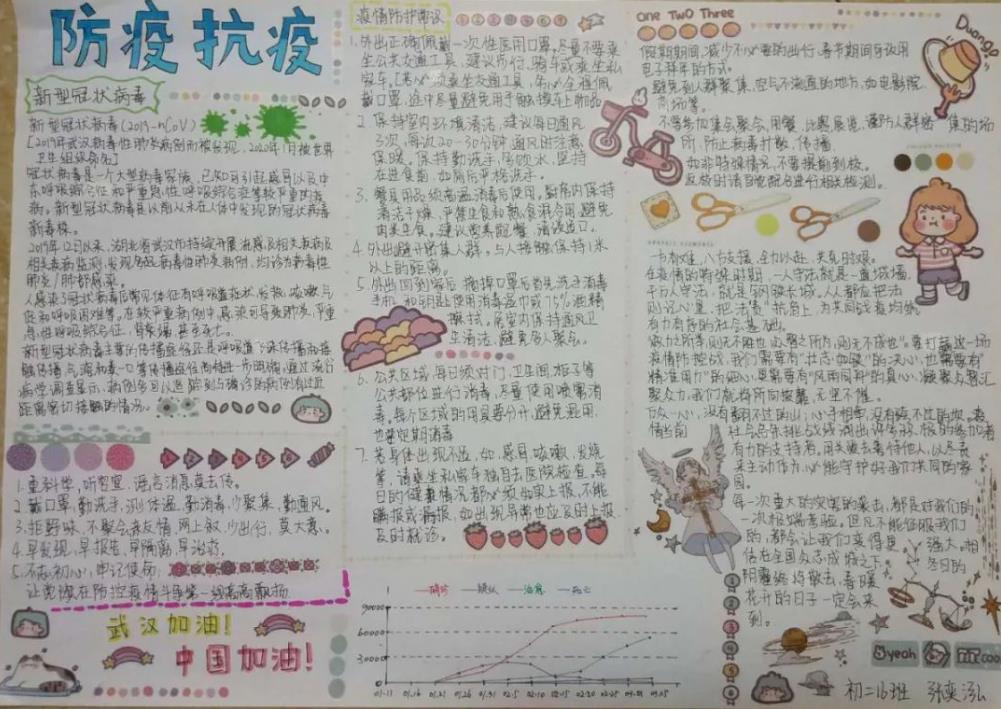 防疫抗疫
新型冠状病毒
新型冠状病毒(2019-nCoV)
[2019年武汉病毒性肺炎病例而被发现,2020年1月被世界
卫生组织命名]
冠状病毒是一个大型病毒家族,已知可引起感冒以及中
东呼吸综合征和严重急性呼吸综合征等较严重的疾
病。新型冠状病毒是以前从未在人体中发现的冠状病毒
新毒株。
2019年12月以来,湖北省武汉市持续开展流感及相关疾病
相关疾病监测,发现多起病毒性肺炎病例,均诊为病毒性
肺炎/肺部感染。
人感染了冠状病毒后常见体征有呼吸道症状、发热、咳嗽、气
促和呼吸困难等。在较严重病例中,感染可导致肺炎、严重
急性呼吸综合征、肾衰竭,甚至死亡。
新型冠状病毒主要的传播途径还是呼吸道飞沫传播和接
病学调查显示,病例多可以追踪到与确诊的病例有过近
距离密切接触的情况。
1.重科学,听官宣,谣言消息莫去传。
2.戴口罩,勤洗手,测体温,勤消毒,少聚集,勤通风。
3.拒野味,不聚会,亲友情,网上叙,少出行,莫大意。
4.早发现,早报告,早隔离,早治疗。
5.不忘初心,牢记使命:
让党旗在防控疫情斗争第一线高高飘扬
武汉加油!
中国加油!
疫情防护建议
1.外出正确佩戴一次性医用口罩。尽量不要乘
坐公共交通工具,建议步行、骑车或乘坐私
家车。[若必须乘坐公共交通工具,务必全程佩
戴口罩,途中尽量避免用手触摸车上物品
2.保持室内环境清洁,建议每日通风
3次,每次20~30分钟,通风时注意
保暖。保持勤洗手、多饮水,坚持
在进食前、如厕后严格洗手。
3.餐具用品须高温消毒后使用。厨房内保持
清洁干燥,严禁生食和熟食混合用,避免
肉类生食。建议肉类配餐,清淡适口。
4.外出避开密集人群,与人接触保持1米
以上的距离。
5.外出回到家后,摘掉口罩后首先洗手消毒
手机和钥匙使用消毒湿巾或75%酒精
擦拭。居室内保持通风卫
生清洁,避免多人聚会。
6.公共区域,每日须对门、卫生间、柜子等
公共部位进行消毒,尽量使用喷雾消
毒。每个区域的用具要分开,避免混用,
也要定期消毒
7.若身体出现不适,如:感冒、咳嗽、发烧
等,请乘坐私家车独自去医院检查,每
日的健康情况都必须如实上报,不能
瞒报或漏报,如出现异常也应及时上报,
及时就诊。
确诊 疑似 治愈 死亡
90000
60000
30000
0
01.11 01.16 01.21 01.26 01.31 02.5 02.10 02.15 02.20
one Two Three
Duang~
假期期间,减少不必要的出行。春节期间可以用
电子拜年的方式。
避免到人群聚集、空气不流通的地方,如电影院、
商场等。
不要参加集会、聚会、用餐、比赛、展览,谨防人群密集的场
所,防止病毒扩散、传播。
如非特殊情况,不要提前到校。
返校时请自觉配合进行相关检测。
一方有难,八方支援,全力以赴,共克时艰。
在疫情的特殊时期,一人守法,就是一道城墙,
千万守法,就是钢铁长城。人人都应把法
有力有序的社会基础。
疫情防控战,我们需要有“壮志如铁”的决心,也需要有“
精准用力”的细心,更需要有“风雨同舟”的真心,凝聚众智汇
聚众力,我们就将所向披靡、无坚不摧。
来主动作为,必能守护好我们共同的家
园。
每一次重大的灾害的来袭,都是对我们的
一次极端考验,但凡不能征服我们
的,都会让我们变得更强大。相
信在全国众志成城之下,冬日的
阴霾终将散去,春暖
花开的日子一定会来
到。
yeah
cool
初二16班 张奕泓